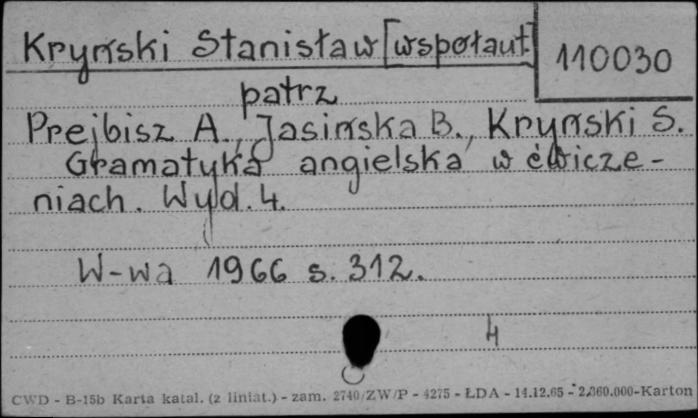 Kryński Stanisław [współaut.]
110030
patrz
Prejbisz A., Jasińska B., Kryński S.
Gramatyka angielska w ćwicze-
niach. Wyd. 4.
W-wa 1966 s. 312.
4
CWD - B-15b Karta katal. (z liniat.) - zam. 2740/ZW/P - 4275 - ŁDA - 14.12.65 - 2.360.000-Karton